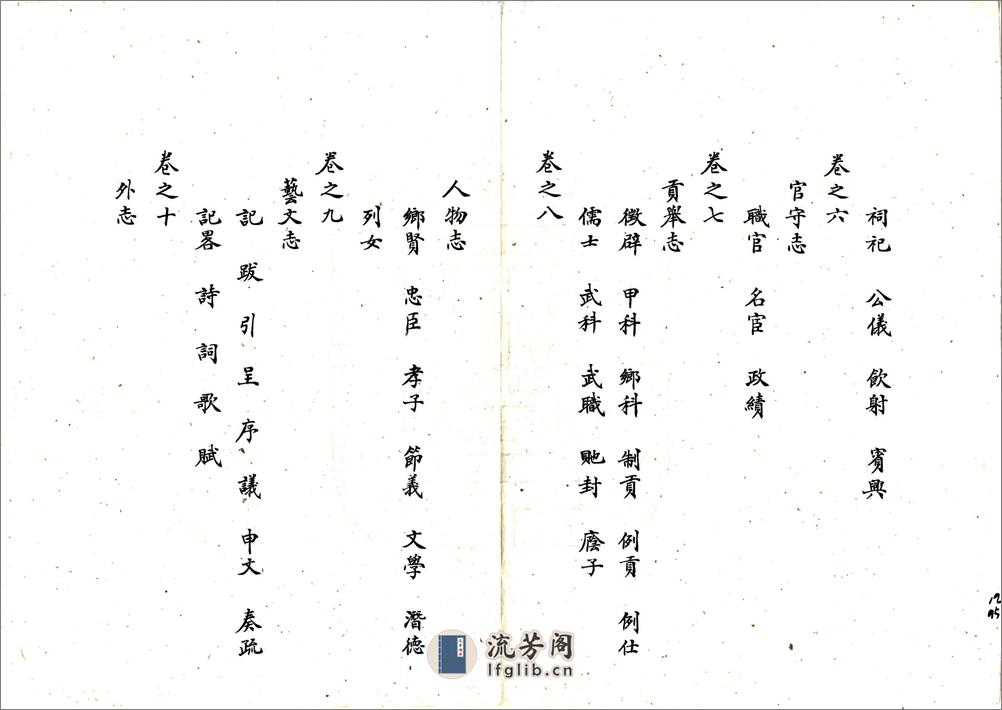 祠祀 公儀 飲射 賓興
卷之六
官守志
職官 名宦 政績
卷之七
貢舉志
徵辟 甲科 鄉科 制貢 例貢 例仕
儒士 武科 武職 貤封 廕子
卷之八
人物志
鄉賢 忠臣 孝子 節義 文學 潛德
列女
卷之九
藝文志
記 跋 引 呈 序 議 申文 奏疏
記畧 詩 詞 歌 賦
卷之十
外志
流芳阁
lfglib.cn